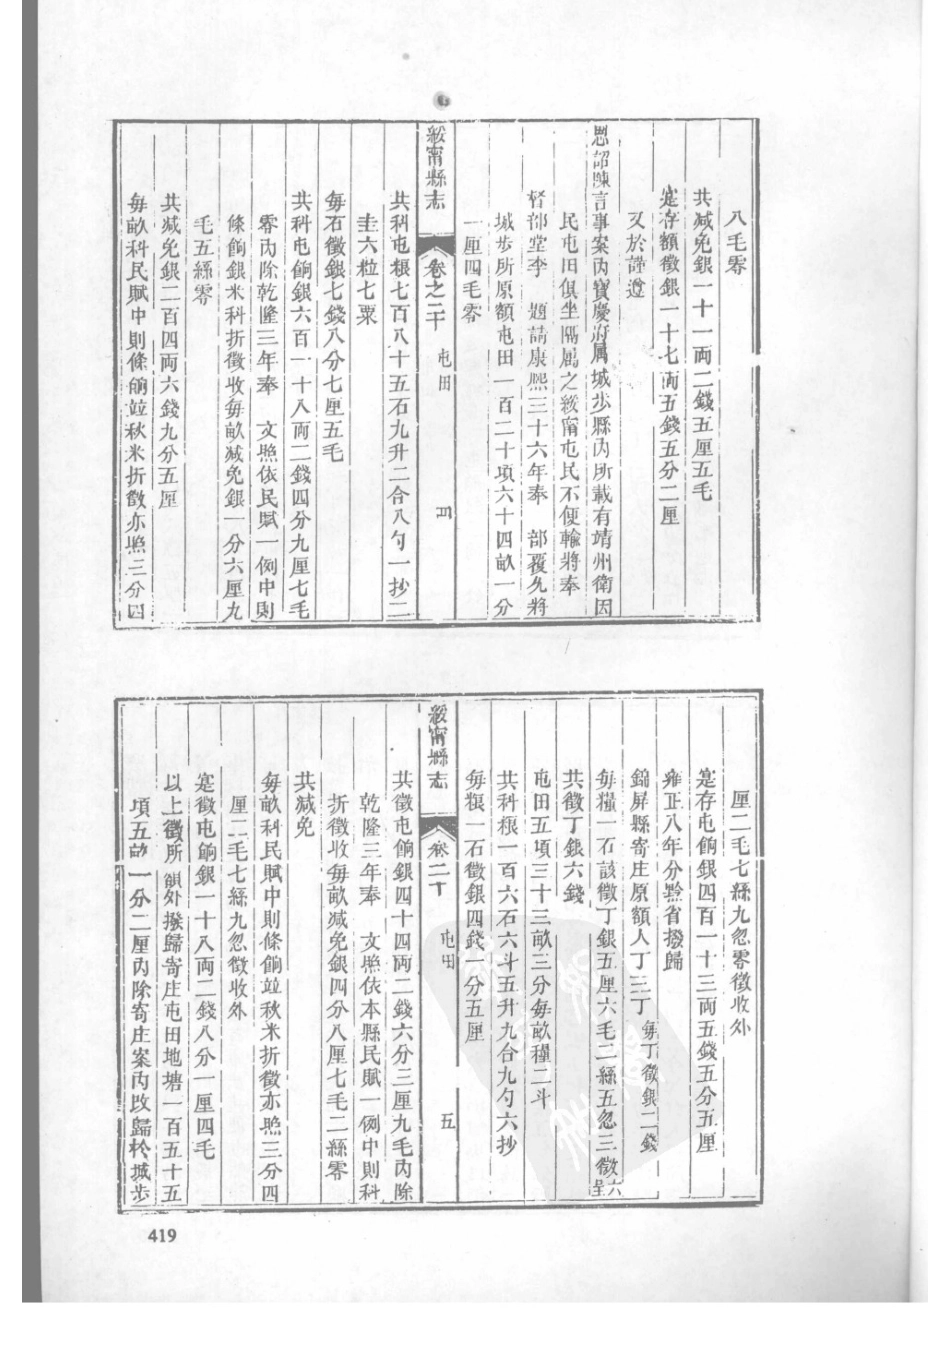 八毛零
共減免銀一十一両二錢五厘五毛
寔存額徵銀一十七両五錢五分二厘
又於謹遵
恩詔陳言事案内寶慶府属城步縣内所載有靖州衛因
民屯旧俱坐隔属之綏甯屯民不便輸將奉
督部堂李　題請康熙三十六年奉　部覆允將
城歩所原額屯田一百二十項六十四畝一分
一厘四毛零
綏甯縣志　卷之二十　屯田　四
共科屯粮七百八十五石九升二合八勺一抄二
圭六粒七粟
每石徵銀七錢八分七厘五毛
共科屯餉銀六百一十八両二錢四分九厘七毛
零内除乾隆三年奉　文照依民賦一例中則
條餉銀米科折徵收每畝減免銀一分六厘九
毛五絲零
共減免銀二百四両六錢九分五厘
每畝科民賦中則條餉竝秋米折徵亦照三分四
厘二毛七絲九忽零徵收外
寔存屯餉銀四百一十三両五錢五分五厘
雍正八年分黔省撥歸
錦屏縣寄庄原額人丁三丁每丁徵銀二錢
每糧一石該徵丁銀五厘六毛二絲五忽三微六呈
共徵丁銀六錢
屯田五項三十三畝三分每畝糧二斗
共科粮一百六石六斗五升九合九勺六抄
每粮一石徵銀四錢一分五厘
綏甯縣志　卷二十　屯田　五
共徵屯餉銀四十四両二錢六分三厘九毛内除
乾隆三年奉　文照依本縣民賦一例中則科
折徵收每畝減免銀四分八厘七毛二絲零
共減免
每畝科民賦中則條餉竝秋米折徵亦照三分四
厘二毛七絲九忽徵收外
寔徵屯餉銀一十八両二錢八分一厘四毛
以上徵所額外撥歸寄庄屯田地塘一百五十五
項五畝一分二厘内除寄庄案内改歸於城步
419